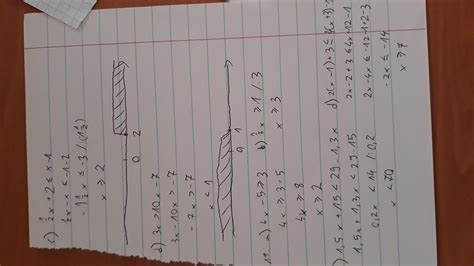 c) ½x + 2 ≤ x - 1
½x - x ≤ -1 - 2
x ≥ 2
0 2
d) 3x > 10x - 7
3x - 10x > -7
-7x > -7
x < 1
0 1
a) 4x - 5 ≥ 3
4x ≥ 3 - 5
4x ≥ 8
x ≥ 2
b) ⅓x ≥ 1 / · 3
x ≥ 3
c) 1,5x + 15 < 29 - 1,3x
1,5x + 1,3x < 29 - 15
0,2x < 14 / : 0,2
x < 70
d) 2(x - 1) + 3 ≤
2x - 2 + 3 ≤ 4x + 12 - 1
2x - 4x ≤ -12 - 1 + 2 - 3
-2x ≤ -14
x ≥ 7